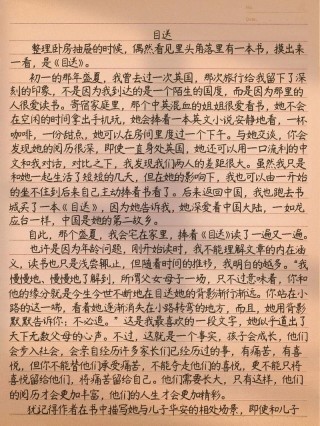 目送
整理卧房抽屉的时候，偶然看见里头角落里有一本书，摸出来
一看，是《目送》。
初一的那年盛夏，我曾去过一次英国，那次旅行给我留下了深
刻的印象，不是因为我到达的是一个陌生的国度，而是因为那里的
人很爱读书。寄宿家庭里，那个中英混血的姐姐很爱看书，她不会
在空闲的时间拿出手机玩，她会捧着一本英文小说安静地看，一杯
咖啡，一份甜点，她可以在房间里度过一个下午。与她交谈，你会
发现她的阅历很深，即使一直身处英国，她还可以用一口流利的中
文和我对话，对比之下，我发现我们两人的差距很大。虽然我只是
和她一起生活了短短的几天，但在她的影响下，我也可以由一开始
的坐不住到后来自己主动捧着书看了。后来返回中国，我也跑去书
城买了一本《目送》，因为她告诉我，她深爱着中国大陆，一如龙
应台一样，中国是她的第二故乡。
自此，那个盛夏，我会宅在家里，捧着《目送》读了一遍又一遍。
也许是因为年龄问题，刚开始读时，我不能理解文章的内在涵
义，读书也只是浅尝辄止，但随着时间的推移，我明白的越多。“我
慢慢地，慢慢地了解到，所谓父女母子一场，只不过意味着，你和
他的缘分就是今生今世不断地在目送她的背影渐行渐远。你站在小
路的这一端，看着她逐渐消失在小路转弯的地方，而且，她用背影
默默告诉你：不必追。”这是我最喜欢的一段文字，她似乎道出了
天下无数父母的心声。不过，这就是一个事实，孩子会成长，他们
会步入社会，会亲自经历许多家长们已经历过的事，有痛苦，有喜
悦，但你不能替他们承受痛苦，不能夺走他们的喜悦，更不能只将
喜悦留给他们，将痛苦留给自己。他们需要长大，只有这样，他们
的阅历才会更加丰富，他们的人生才会更加精彩。
犹记得作者在书中描写她与儿子华安的相处场景，即使和儿子